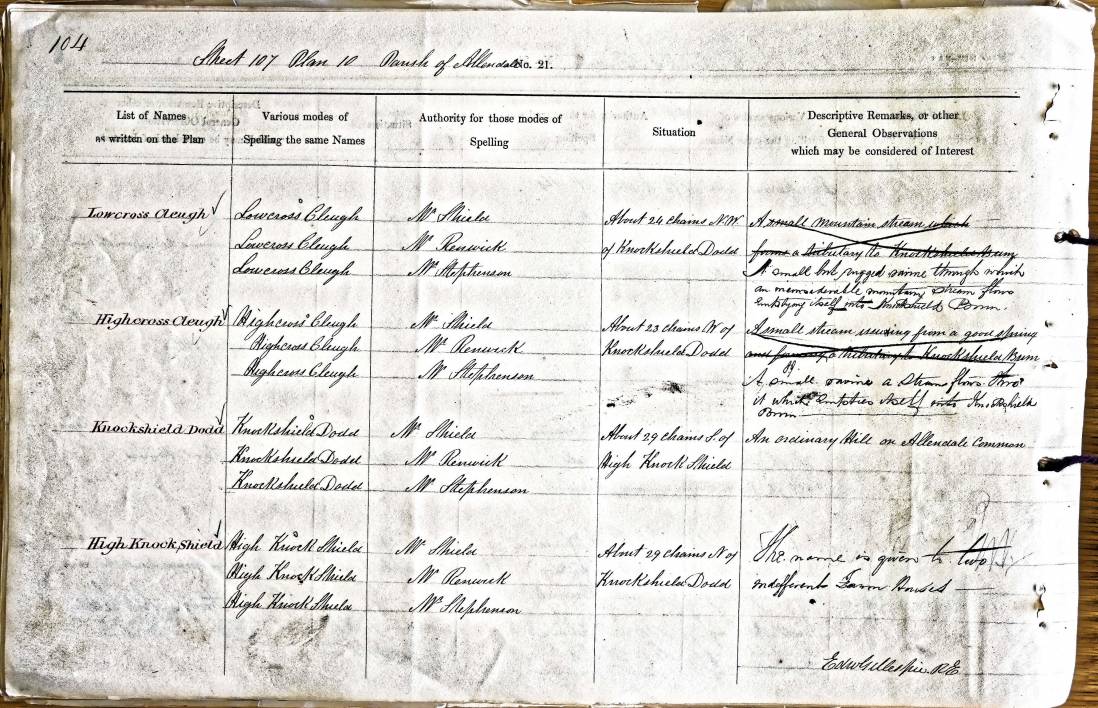 104
Sheet 107 Plan 10 Parish of Allendale No. 21.
List of Names
as written on the Plan
Various modes of
Spelling the same Names
Authority for those modes of
Spelling
Situation
Descriptive Remarks, or other
General Observations
which may be considered of Interest
Lowcross Cleugh
Lowcross Cleugh
Lowcross Cleugh
Lowcross Cleugh
Mr Shield
Mr Renwick
Mr Stephenson
About 24 chains N.W.
of Knockshield Dodd
A small mountain stream which
forms a tributary to Knockshield Burn
A small but rugged ravine through which
an inconsiderable mountain stream flows
Emptying itself into Knockshield Burn.
Highcross Cleugh
Highcross Cleugh
Highcross Cleugh
Highcross Cleugh
Mr Shield
Mr Renwick
Mr Stephenson
About 23 chains W of
Knockshield Dodd
A small stream issuing from a good spring
and forming a tributary to Knockshield Burn
A small ravine a Stream flows thro'
it which Empties itself into Knockshield
Burn
Knockshield Dodd
Knockshield Dodd
Knockshield Dodd
Knockshield Dodd
Mr Shield
Mr Renwick
Mr Stephenson
About 29 chains S. of
High Knock Shield
An ordinary Hill on Allendale Common
High Knock Shield
High Knock Shield
High Knock Shield
High Knock Shield
Mr Shield
Mr Renwick
Mr Stephenson
About 29 chains N of
Knockshield Dodd
The name is given to two
indifferent Farm Houses
Edw Gillespie R.E